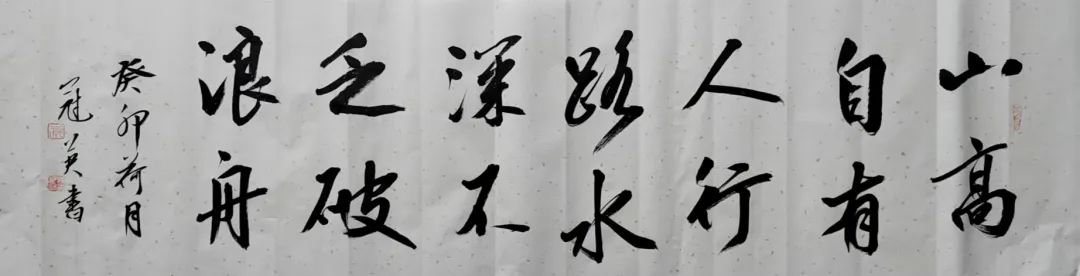 山高
自有
人行
路水
深不
乏破
浪舟
癸卯荷月
冠英書